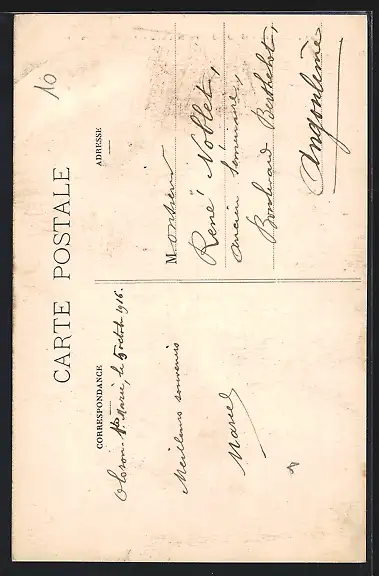 10
CARTE POSTALE
CORRESPONDANCE
Oloron-Ste Marie, le 5 octob 1916.
Meilleurs souvenirs
Marcel
ADRESSE
Monsieur
René Noblet,
ancien Séminaire,
Boulevard Berthelot,
Angoulême